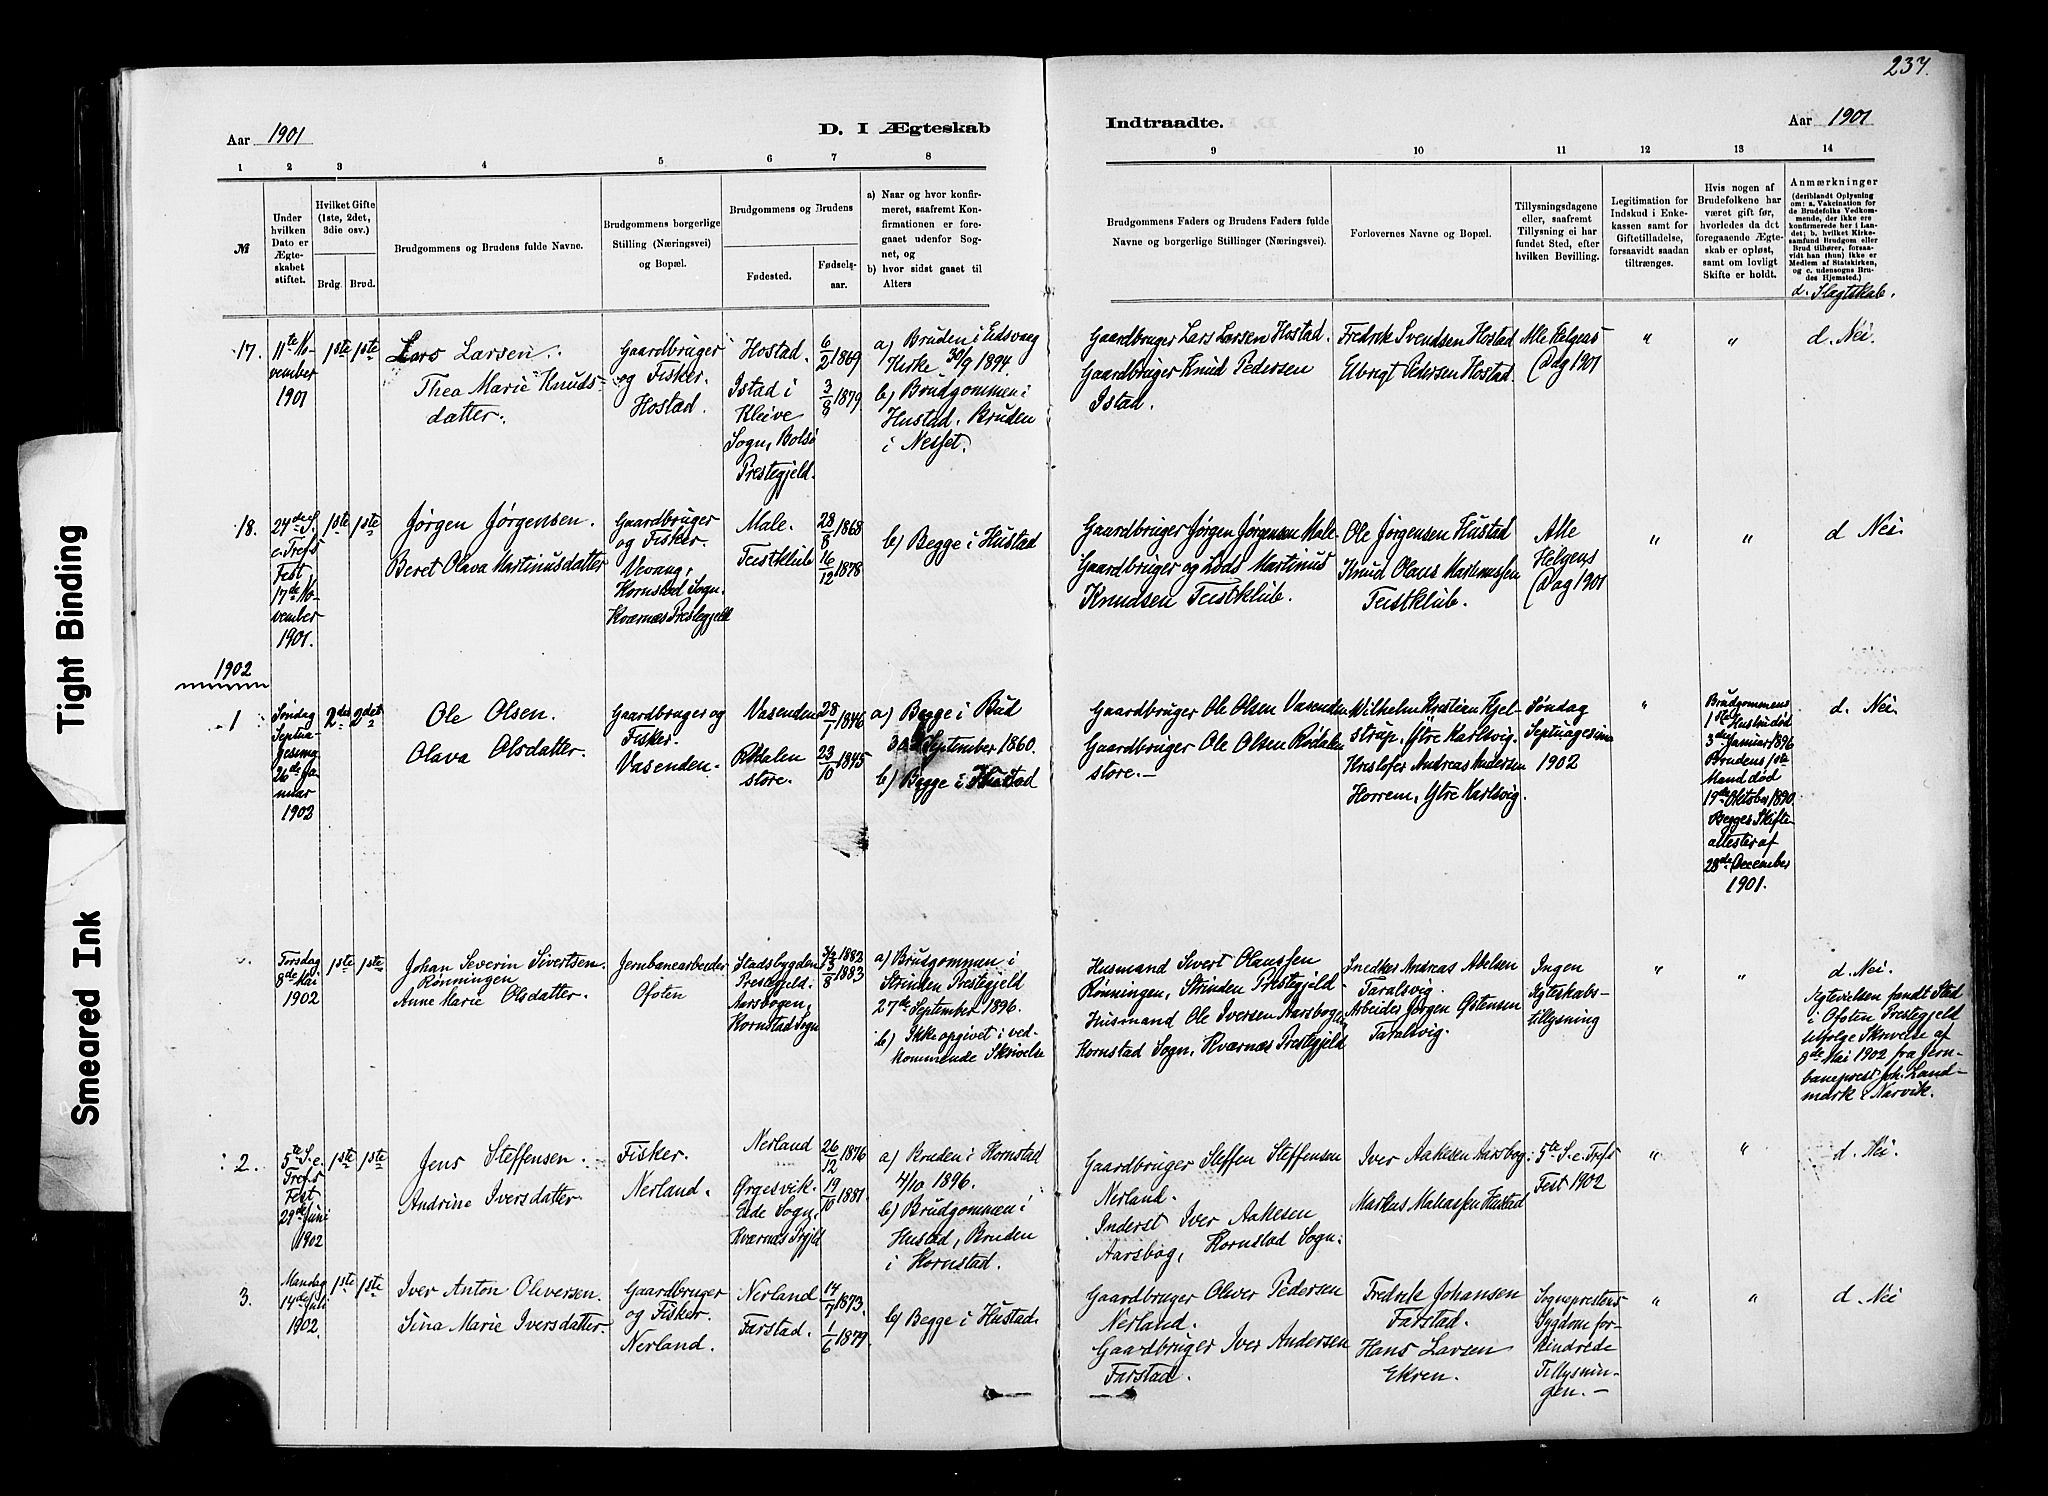 237.
Aar 1901
D. I Ægteskab
Indtraadte.
Aar 1901
1 2 3 4 5 6 7 8
9 10 11 12 13 14
№
Under
hvilken
Dato er
Ægte-
skabet
stiftet.
Hvilket Gifte
(1ste, 2det,
3die osv.)
Brdg. Brud.
Brudgommens og Brudens fulde Navne.
Brudgommens borgerlige
Stilling (Næringsvei)
og Bopæl.
Brudgommens og Brudens
Fødested.
Fødsels-
aar.
a) Naar og hvor konfir-
meret, saafremt Kon-
firmationen er fore-
gaaet udenfor Sog-
net, og
b) hvor sidst gaaet til
Alters
Brudgommens Faders og Brudens Faders fulde
Navne og borgerlige Stillinger (Næringsvei).
Forlovernes Navne og Bopæl.
Tillysningsdagene
eller, saafremt
Tillysning ei har
fundet Sted, efter
hvilken Bevilling.
Legitimation for
Indskud i Enke-
kassen samt for
Giftetilladelse,
forsaavidt saadan
tiltrænges.
Hvis nogen af
Brudefolkene har
været gift før,
hvorledes da det
foregaaende Ægte-
skab er opløst,
samt om lovligt
Skifte er holdt.
Anmærkninger
(deriblandt Oplysning
om: a. Vakcination for
de Brudefolks Vedkom-
mende, der ikke ere
konfirmerede her i Lan-
det; b. hvilket Kirke-
samfund Brudgom eller
Brud tilhører, forsaa-
vidt han (hun) ikke er
Medlem af Statskirken,
og c. udensogns Bru-
des Hjemsted.)
d. Slægtskab.
17.
11te No-
vember
1901
1ste 1ste
Lars Larsen.
Thea Marie Knuds-
datter.
Gaardbruger
og Fisker.
Hostad.
Hostad.
Istad i
Kleive
Sogn, Bolsø
Prestegjeld.
6/2 1869
3/8 1879
a) Bruden i Eidsvaag
Kirke 30/9 1894.
b) Brudgommen i
Hustad. Bruden
i Nesset.
Gaardbruger Lars Larsen Hostad.
Gaardbruger Knud Pedersen
Istad.
Fredrik Svendsen Hostad
Elbrigt Pedersen Hostad.
Alle Helgens
Dag 1901
"
"
d. Nei.
18.
24de S.
e. Trefs
Fest
17de No-
vember
1901.
1ste 1ste
Jørgen Jørgensen.
Beret Olava Martinusdatter
Gaardbruger
og Fisker.
Vevang,
Kornstad Sogn.
Kværnæs Prestegjeld
Male.
Teistklub
28/8 1868
16/12 1878
b) Begge i Hustad
Gaardbruger Jørgen Jørgensen Male.
Gaardbruger og Lods Martinus
Knudsen Teistklub.
Ole Jørgensen Hustad
Knud Olaus Martinussen
Teistklub.
Alle
Helgens
Dag 1901
"
"
d Nei.
1902
1
Søndag
Septua-
gesima
26de Ja-
nuar
1902
2det 2det
Ole Olsen.
Olava Olsdatter.
Gaardbruger og
Fisker.
Vasenden.
Vasenden
Rødalen
store.
28/1 1846
23/10 1845
a) Begge i Bud
September 1860.
b) Begge i Hustad
Gaardbruger Ole Olsen Vasenden
Gaardbruger Ole Olsen Rødalen
store.
Wilhelm Kristian Kjel-
strup, Ytre Karlsvig.
Kristofer Andreas Andersen
Horrem, Ytre Karlsvig.
Søndag
Septuagesima
1902
"
Brudgommens
1ste Hustru død
3de Januar 1896
Brudens 1ste
Mand død
19de Oktober 1890.
Begges Skifte-
attester af
28de December
1901.
d. Nei.
Torsdag
8de Mai
1902
1ste 1ste
Johan Severin Sivertsen
Rønningen
Anne Marie Olsdatter.
Jernbanearbeider
Ofoten
Stadsbygden
Prestegjeld.
Aarsbogen,
Kornstad Sogn
1882
1883
a) Brudgommen i
Strinden Prestegjeld
27de September 1896.
b) Ikke opgivet i ved-
kommende Skrivelse
Husmand Sivert Olaussen
Rønningen, Strinden Prestegjeld
Husmand Ole Iversen Aarsbogen
Kornstad Sogn, Kværnæs Prestegjeld
Snedker Andreas Abelsen
Taralsvig.
Arbeider Jørgen Ostensen
Taralsvig.
Ingen
Ægteskabs-
tillysning
"
"
d. Nei.
Vigtevielsen fandt Sted
i Ofoten Prestegjeld
ifølge Skrivelse af
8de Mai 1902 fra Jern-
baneprest Joh. Land-
mark i Narvik.
2.
5te S. e.
Trefs
Fest
29de Juni
1902
1ste 1ste
Jens Steffensen.
Andrine Iversdatter.
Fisker.
Nerland.
Nerland
Ørgesvik.
Eide Sogn,
Kværnæs Prgjld
26/12 1876
19/10 1881.
a) Bruden i Kornstad
4/10 1896.
b) Brudgommen i
Hustad, Bruden
i Kornstad.
Gaardbruger Steffen Steffensen
Nerland.
Inderst Iver Aakesen
Aarsbog, Kornstad Sogn.
Iver Aakesen Aarsbog.
Markus Matiassen Hustad
5te S. e. Trefs
Fest 1902
"
"
d. Nei.
3.
Mandag
14de Juli
1902.
1ste 1ste
Iver Anton Oliversen.
Sina Marie Iversdatter.
Gaardbruger
og Fisker.
Nerland.
Nerland
Farstad.
14/7 1873.
1/6 1879.
b) Begge i Hustad.
Gaardbruger Oliver Pedersen
Nerland.
Gaardbruger Iver Andersen
Farstad.
Fredrik Johansen
Farstad.
Hans Larsen
Ekren.
Sogneprestens
Sygdom for-
hindrede
Tillysnin-
gen.
"
"
d. Nei
Tight Binding
Smeared Ink